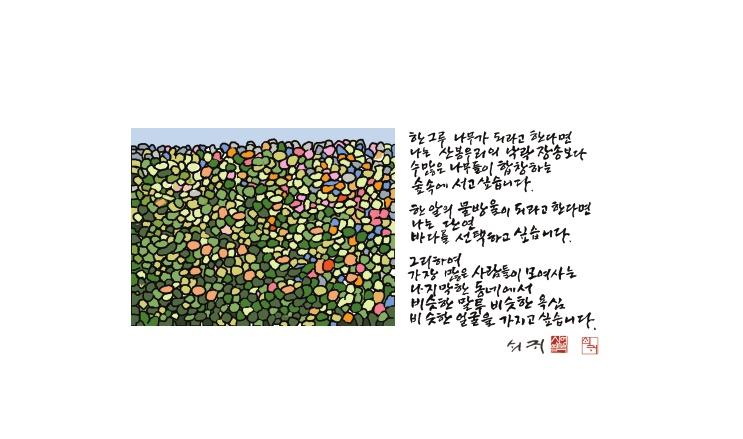 한 그루 나무가 되라고 한다면
나는 산봉우리의 낙락장송보다
수많은 나무들이 합창하는
숲속에 서고 싶습니다.
한 알의 물방울이 되라고 한다면
나는 단연
바다를 선택하고 싶습니다.
그리하여
가장 많은 사람들이 모여사는
나지막한 동네에서
비슷한 말투 비슷한 욕심
비슷한 얼굴을 가지고 싶습니다.
쇠귀